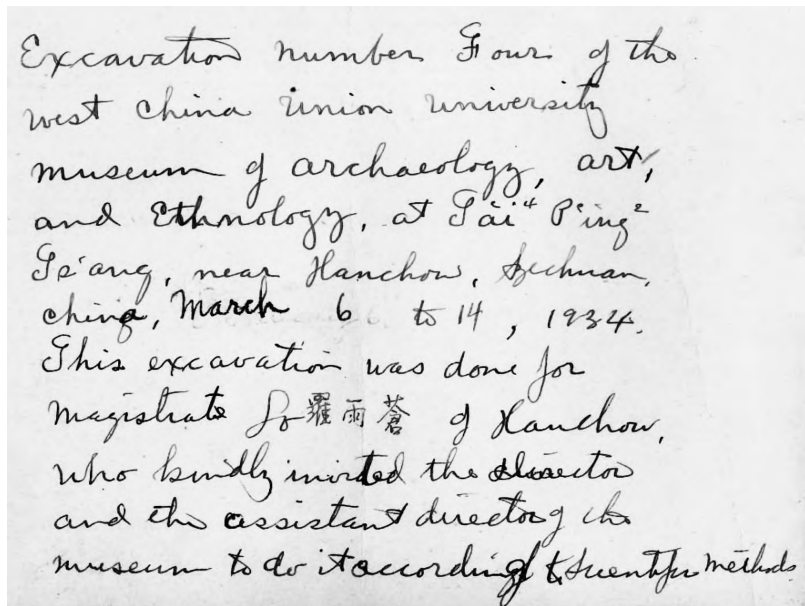 Excavation number Four of the
west China Union University
museum of archaeology, art,
and Ethnology, at T'ai⁴ P'ing²
Ts'ang, near Hanchow, Szechuan,
China, March 6 to 14, 1934.
This excavation was done for
magistrate Lo 羅雨蒼 of Hanchow,
who kindly invited the director
and the assistant director of the
museum to do it according to scientific methods